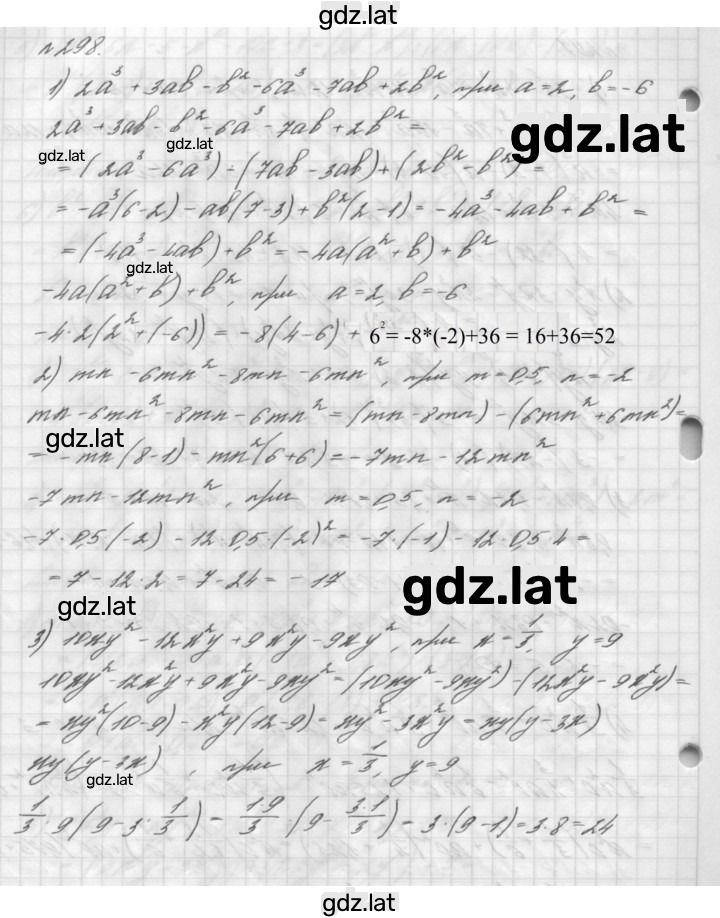 gdz.lat
№298.
1) 2a³ + 3ab - b² - 6a³ - 7ab + 2b², при a=2, b=-6
2a³ + 3ab - b² - 6a³ - 7ab + 2b² =
gdz.lat
gdz.lat
gdz.lat
= (2a³ - 6a³) - (7ab - 3ab) + (2b² - b²) =
= -a³(6-2) - ab(7-3) + b²(2-1) = -4a³ - 4ab + b² =
= (-4a³ - 4ab) + b² = -4a(a² + b) + b²
gdz.lat
-4a(a² + b) + b², при a=2, b=-6
-4·2(2² + (-6)) = -8(4-6) + 6² = -8*(-2)+36 = 16+36=52
2) mn - 6mn² - 8mn - 6mn², при m=0,5, n=-2
mn - 6mn² - 8mn - 6mn² = (mn - 8mn) - (6mn² + 6mn²) =
gdz.lat
= -mn(8-1) - mn²(6+6) = -7mn - 12mn²
-7mn - 12mn², при m=0,5, n=-2
-7·0,5·(-2) - 12·0,5·(-2)² = -7·(-1) - 12·0,5·4 =
= 7 - 12·2 = 7 - 24 = -17
gdz.lat
gdz.lat
3) 10xy² - 12x²y + 9x²y - 9xy², при x=1/3, y=9
10xy² - 12x²y + 9x²y - 9xy² = (10xy² - 9xy²) - (12x²y - 9x²y) =
= xy²(10-9) - x²y(12-9) = xy² - 3x²y = xy(y-3x)
xy(y-3x), при x=1/3, y=9
gdz.lat
1/3·9(9-3·1/3) = 1·9/3·(9-3·1/3) = 3·(9-1) = 3·8 = 24
gdz.lat